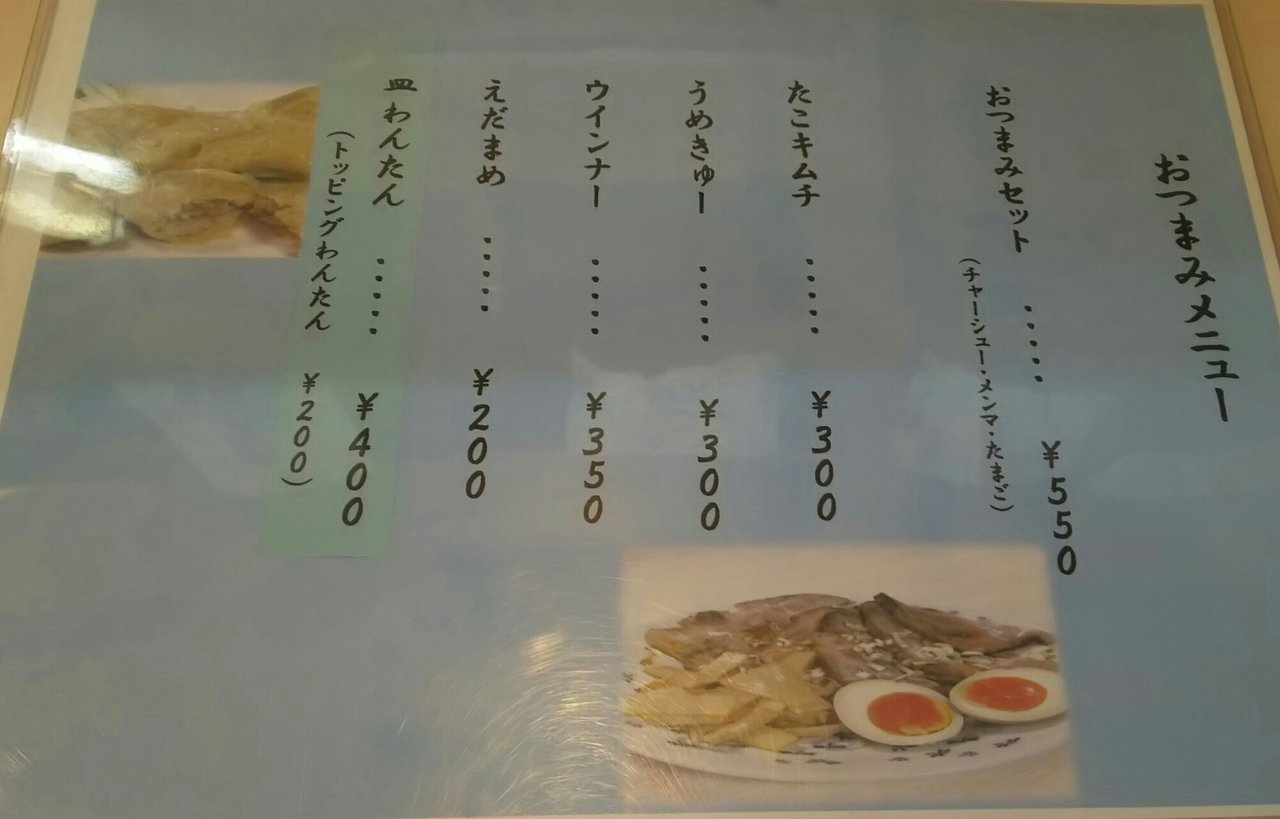 おつまみメニュー
おつまみセット ・・・・・ ¥550
(チャーシュー・メンマ・たまご)
たこキムチ ・・・・・ ¥300
うめきゅー ・・・・・ ¥300
ウインナー ・・・・・ ¥350
えだまめ ・・・・・ ¥200
皿わんたん ・・・・・ ¥400
(トッピングわんたん ¥200)